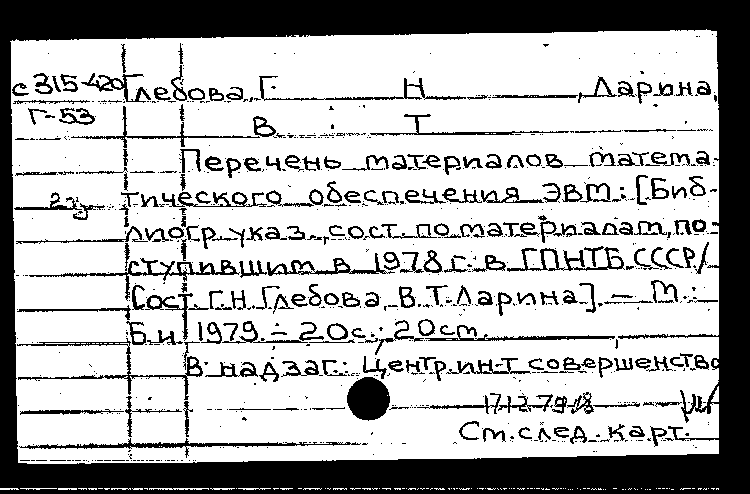 с 315-420 Глебова, Г Н , Ларина,
Г-53
В Т
Перечень материалов матема-
2 эк тического обеспечения ЭВМ: [Биб-
лиогр. указ., сост. по материалам, по-
ступившим в 1978 г. в ГПНТБ СССР/
Сост. Г.Н. Глебова, В.Т. Ларина]. – М.:
Б.и., 1979. – 20 с.; 20 см.
В надзаг.: Центр. ин-т совершенство
17.12.79
См. след. карт.